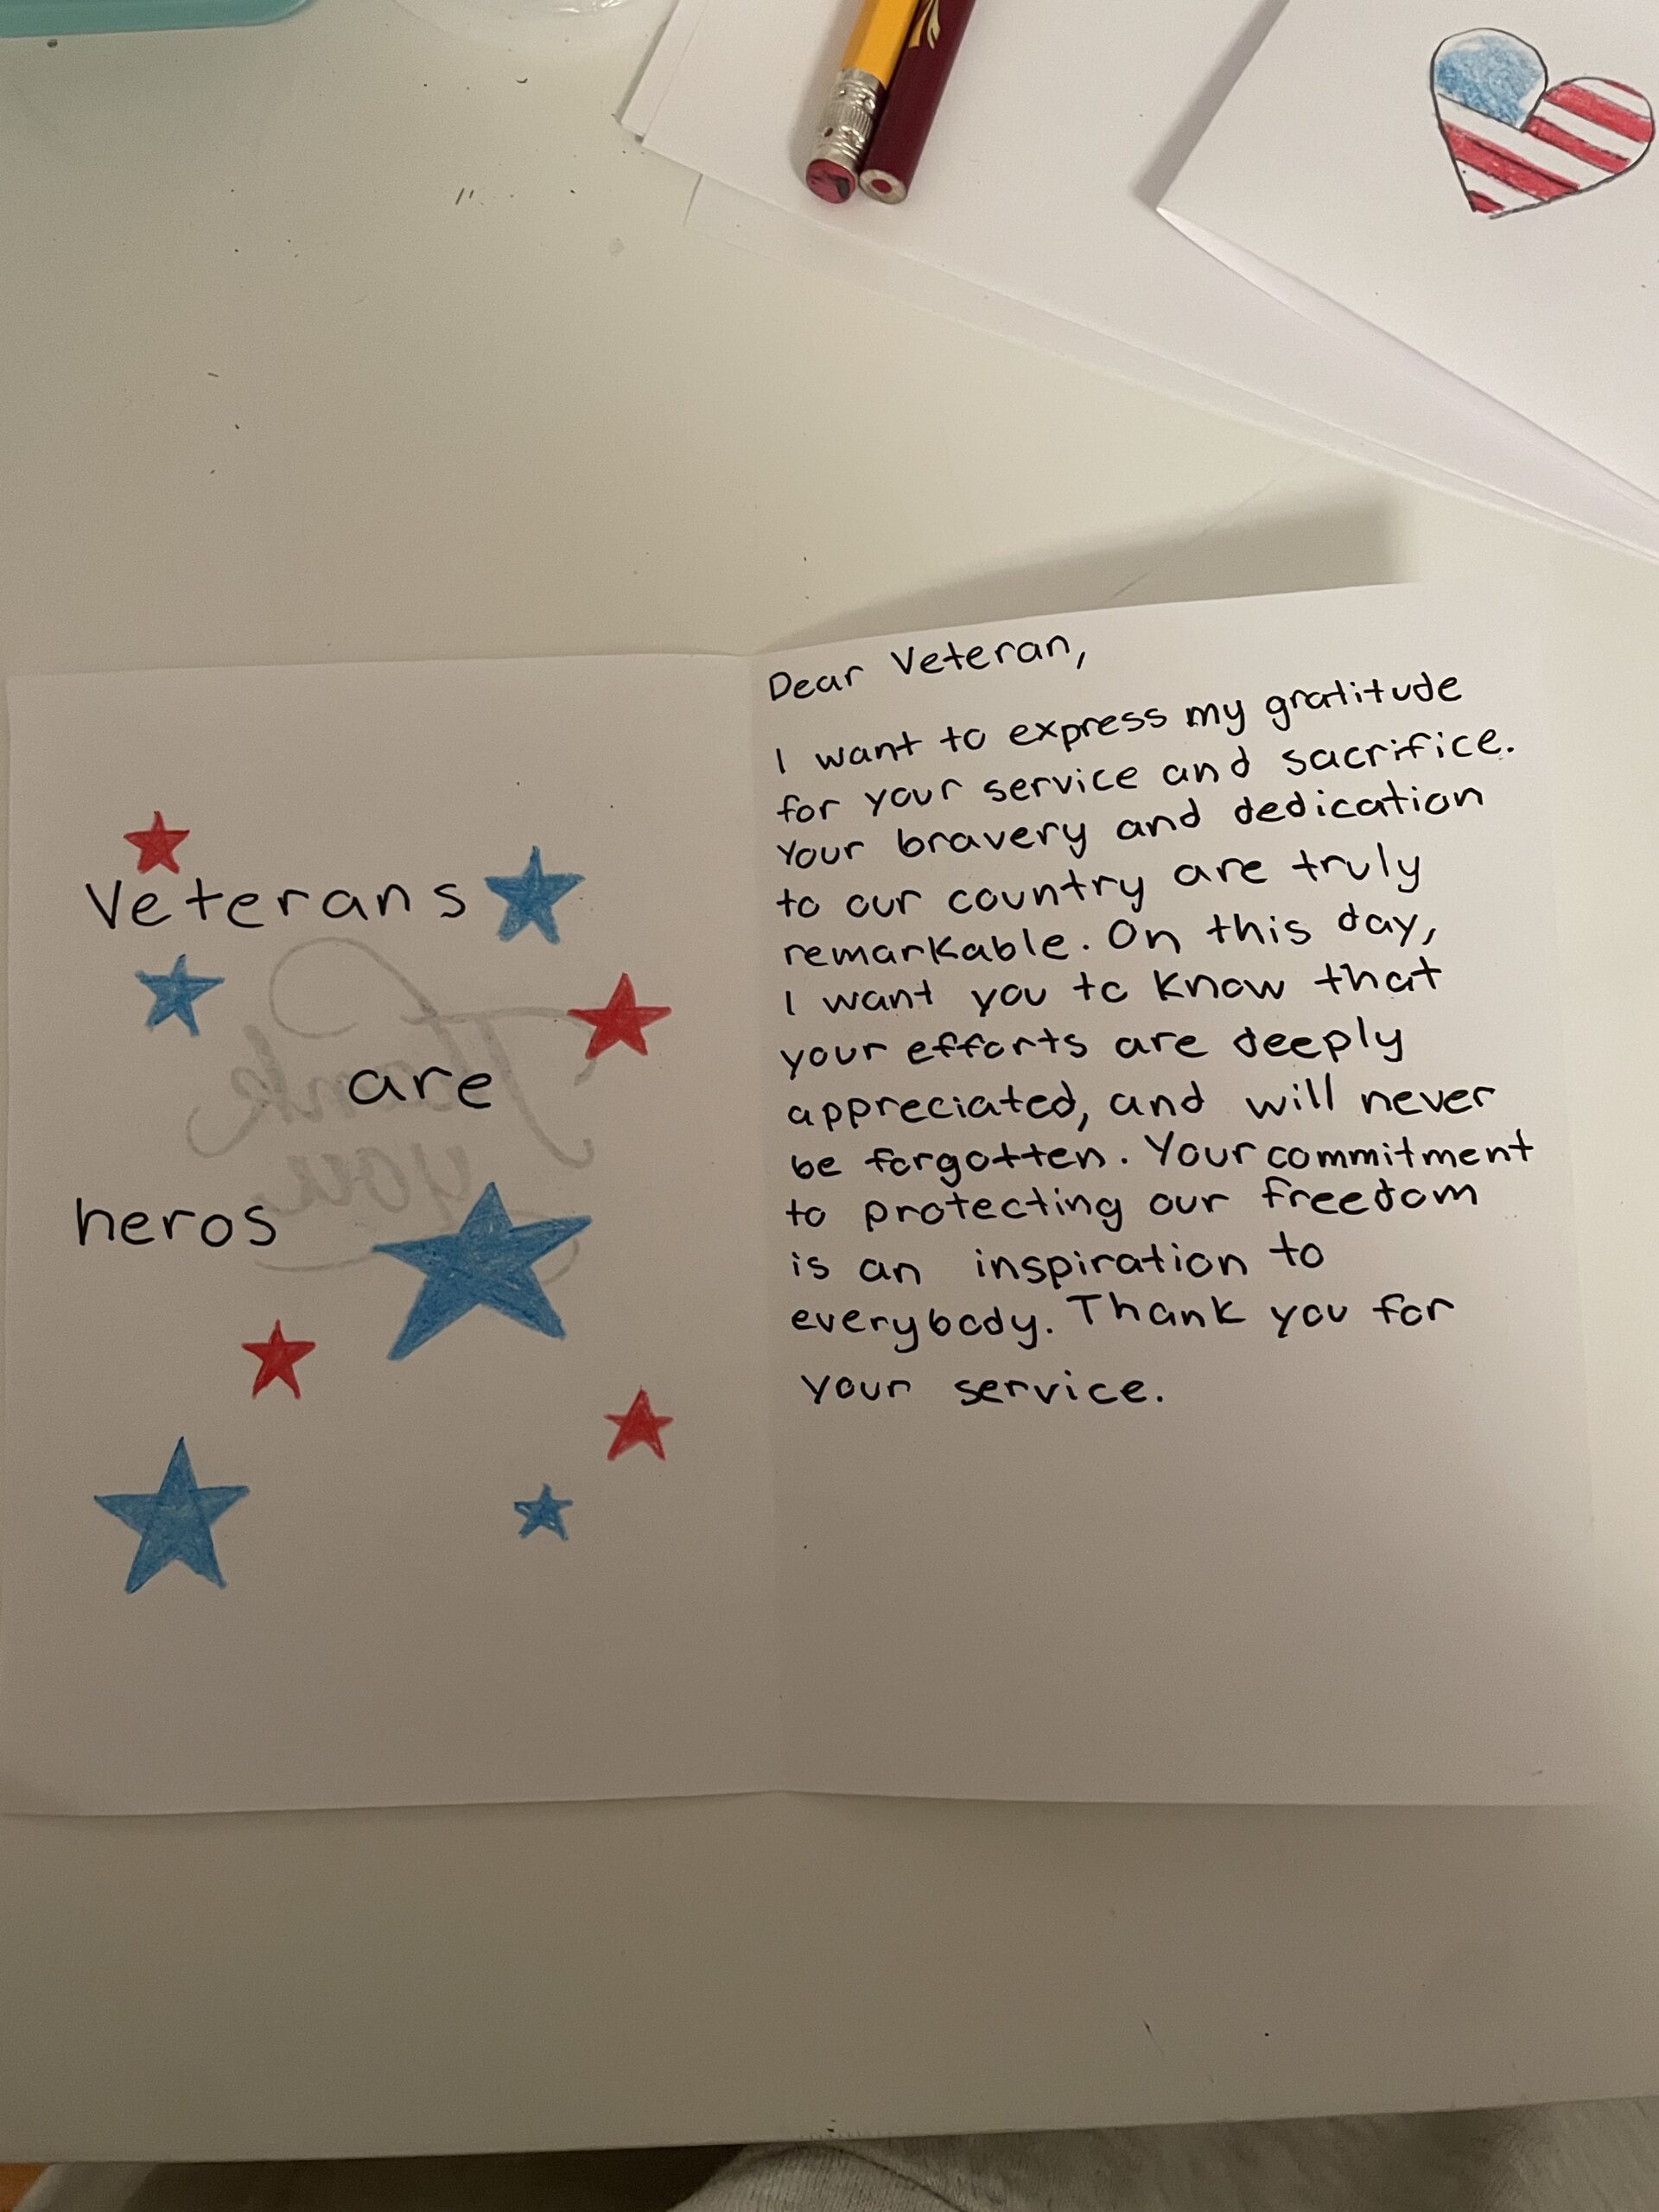 Veterans
are
heros
Thank
you
Dear Veteran,
I want to express my gratitude
for your service and sacrifice.
Your bravery and dedication
to our country are truly
remarkable. On this day,
I want you to know that
your efforts are deeply
appreciated, and will never
be forgotten. Your commitment
to protecting our freedom
is an inspiration to
everybody. Thank you for
your service.